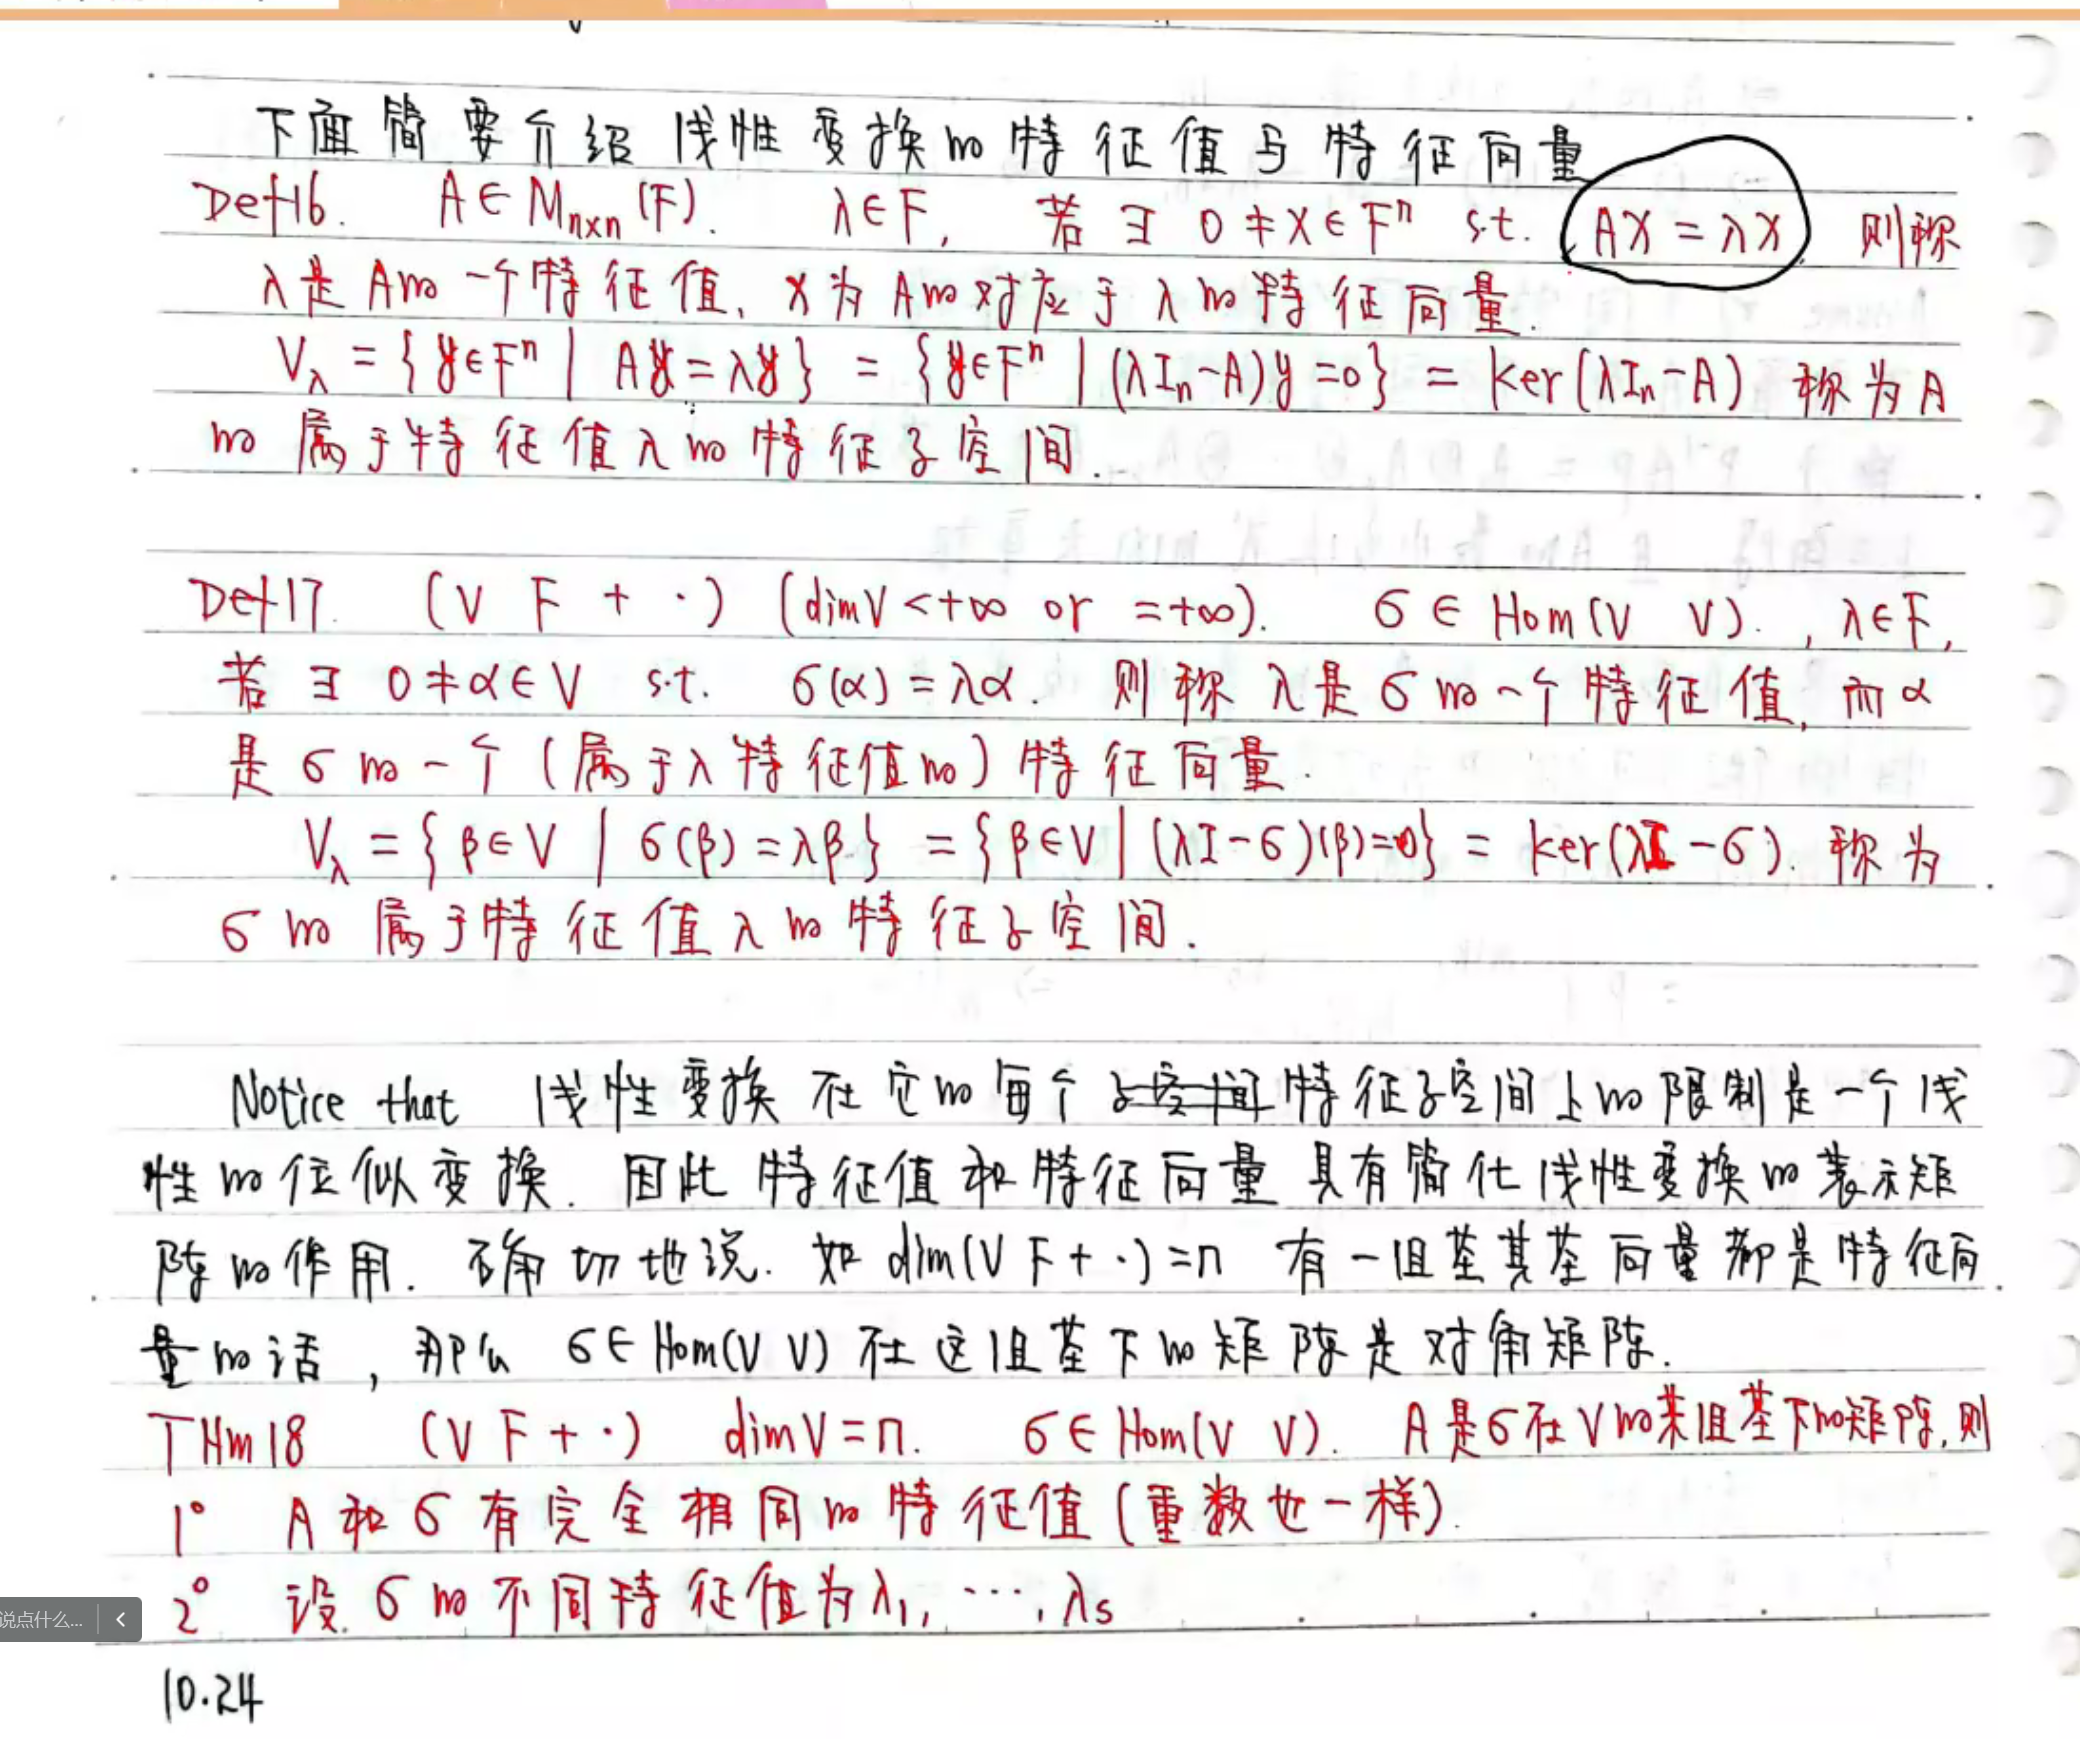 下面简要介绍线性变换的特征值与特征向量
Def16. A∈Mn×n(F). λ∈F, 若∃ 0≠X∈Fⁿ s.t. AX=λX, 则称
λ是A的一个特征值, X为A的对应于λ的特征向量.
Vλ={y∈Fⁿ | Ay=λy} = {y∈Fⁿ | (λIn-A)y=0} = ker(λIn-A), 称为A
的属于特征值λ的特征子空间.
Def17. (V F + ·) (dimV<+∞ or =+∞). σ∈Hom(V V)., λ∈F,
若∃ 0≠α∈V s.t. σ(α)=λα. 则称λ是σ的一个特征值, 而α
是σ的一个(属于λ特征值的)特征向量.
Vλ={β∈V | σ(β)=λβ} = {β∈V | (λI-σ)(β)=0} = ker(λI-σ), 称为
σ的属于特征值λ的特征子空间.
Notice that 线性变换在它的每个子空间特征子空间上的限制是一个线
性的位似变换. 因此特征值和特征向量具有简化线性变换的表示矩
阵的作用. 确切地说. 如dim(V F + ·)=n 有一组基其基向量都是特征向
量的话, 那么σ∈Hom(V V)在这组基下的矩阵是对角矩阵.
THm18 (V F + ·) dimV=n. σ∈Hom(V V). A是σ在V的某组基下的矩阵, 则
1° A和σ有完全相同的特征值(重数也一样).
2° 设σ的不同特征值为λ1, ···, λs
说点什么...
10.24